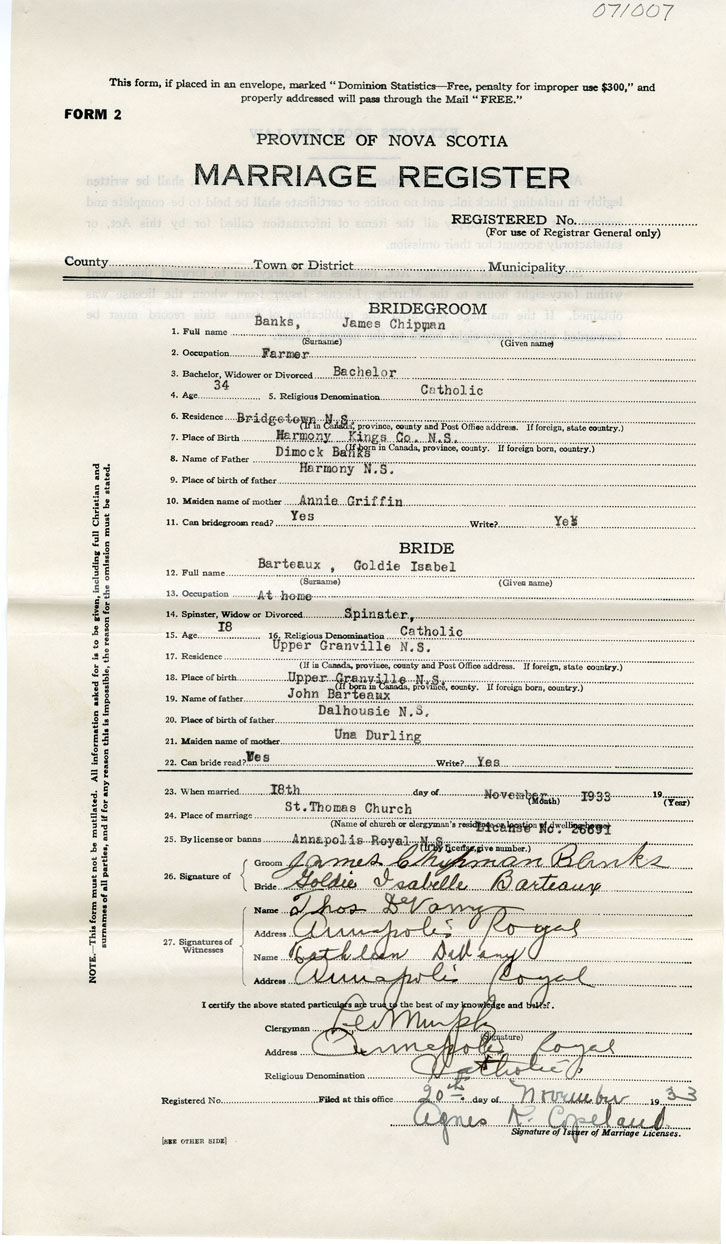 071007
This form, if placed in an envelope, marked "Dominion Statistics—Free, penalty for improper use $300," and
properly addressed will pass through the Mail "FREE."
FORM 2
PROVINCE OF NOVA SCOTIA
MARRIAGE REGISTER
REGISTERED No.
(For use of Registrar General only)
County Town or District Municipality
BRIDEGROOM
1. Full name Banks, James Chipman
(Surname) (Given name)
2. Occupation Farmer
3. Bachelor, Widower or Divorced Bachelor
4. Age 34 5. Religious Denomination Catholic
6. Residence Bridgetown N.S.
(If in Canada, province, county and Post Office address. If foreign, state country.)
7. Place of Birth Harmony Kings Co. N.S.
(If born in Canada, province, county. If foreign born, country.)
8. Name of Father Dimock Banks
9. Place of birth of father Harmony N.S.
10. Maiden name of mother Annie Griffin
11. Can bridegroom read? Yes Write? Yes
BRIDE
12. Full name Barteaux , Goldie Isabel
(Surname) (Given name)
13. Occupation At home
14. Spinster, Widow or Divorced Spinster,
15. Age I8 16. Religious Denomination Catholic
17. Residence Upper Granville N.S.
(If in Canada, province, county and Post Office address. If foreign, state country.)
18. Place of birth Upper Granville N.S.
(If born in Canada, province, county. If foreign born, country.)
19. Name of father John Barteaux
20. Place of birth of father Dalhousie N.S.
21. Maiden name of mother Una Durling
22. Can bride read? Yes Write? Yes
23. When married I8th day of November I933 19
(Month) (Year)
24. Place of marriage St.Thomas Church
(Name of church or clergyman's residence or location of dwelling house)
License No. 26691
25. By license or banns Annapolis Royal N.S.
(If by license, give number.)
26. Signature of Groom James Chipman Banks
Bride Goldie Isabelle Barteaux
27. Signatures of Witnesses
Name Thos DeVany
Address Annapolis Royal
Name Kathleen DeVany
Address Annapolis Royal
I certify the above stated particulars are true to the best of my knowledge and belief.
Clergyman Murphy
(Signature)
Address Annapolis Royal
Religious Denomination Catholic
Registered No. Filed at this office 20th day of November 1933
Agnes R. Copeland
Signature of Issuer of Marriage Licenses.
[SEE OTHER SIDE]
NOTE.—This form must not be mutilated. All information asked for is to be given, including full Christian and
surnames of all parties, and if for any reason this is impossible, the reason for the omission must be stated.